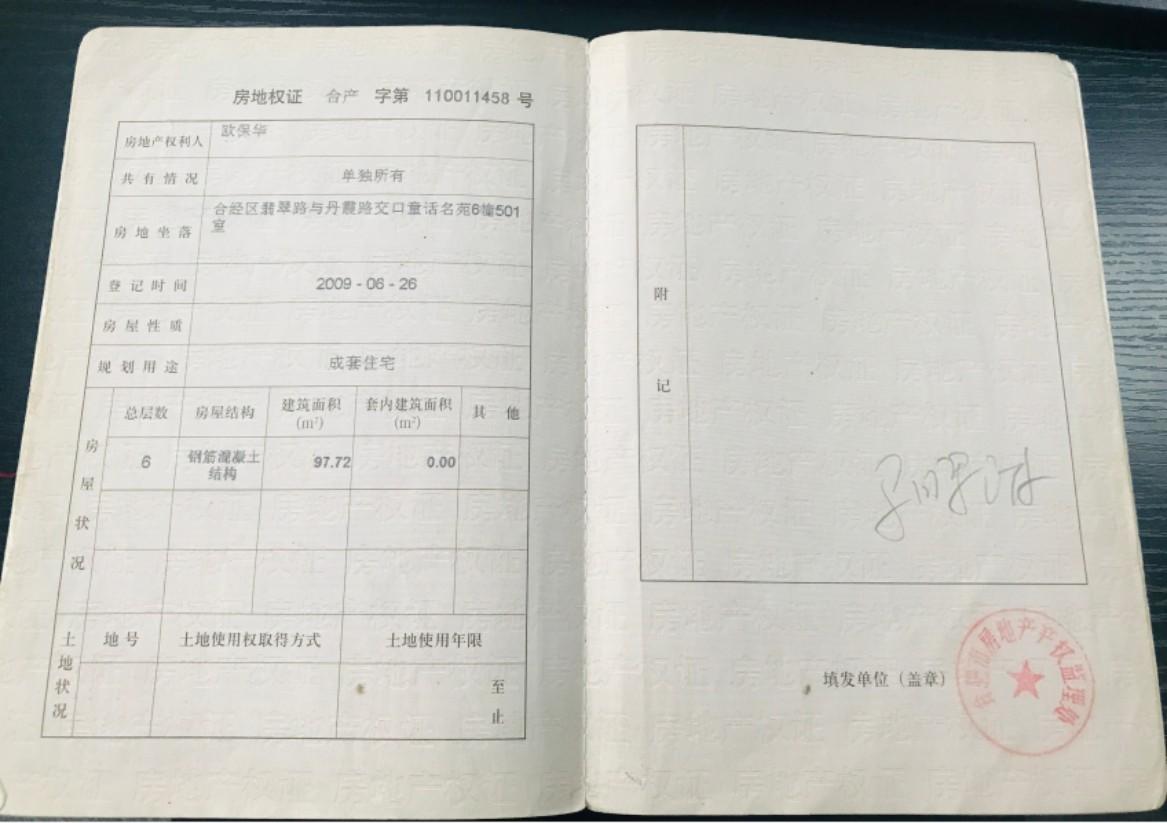 房地权证 合产 字第 110011458 号
房地产权利人 欧保华
共有情况 单独所有
房地坐落 合经区翡翠路与丹霞路交口童话名苑6幢501
室
登记时间 2009-06-26
房屋性质
规划用途 成套住宅
房屋状况
总层数 房屋结构 建筑面积(m²) 套内建筑面积(m²) 其他
6 钢筋混凝土结构 97.72 0.00
土地状况
地号 土地使用权取得方式 土地使用年限
至
止
附
记
填发单位（盖章）
合肥市房地产产权监理处